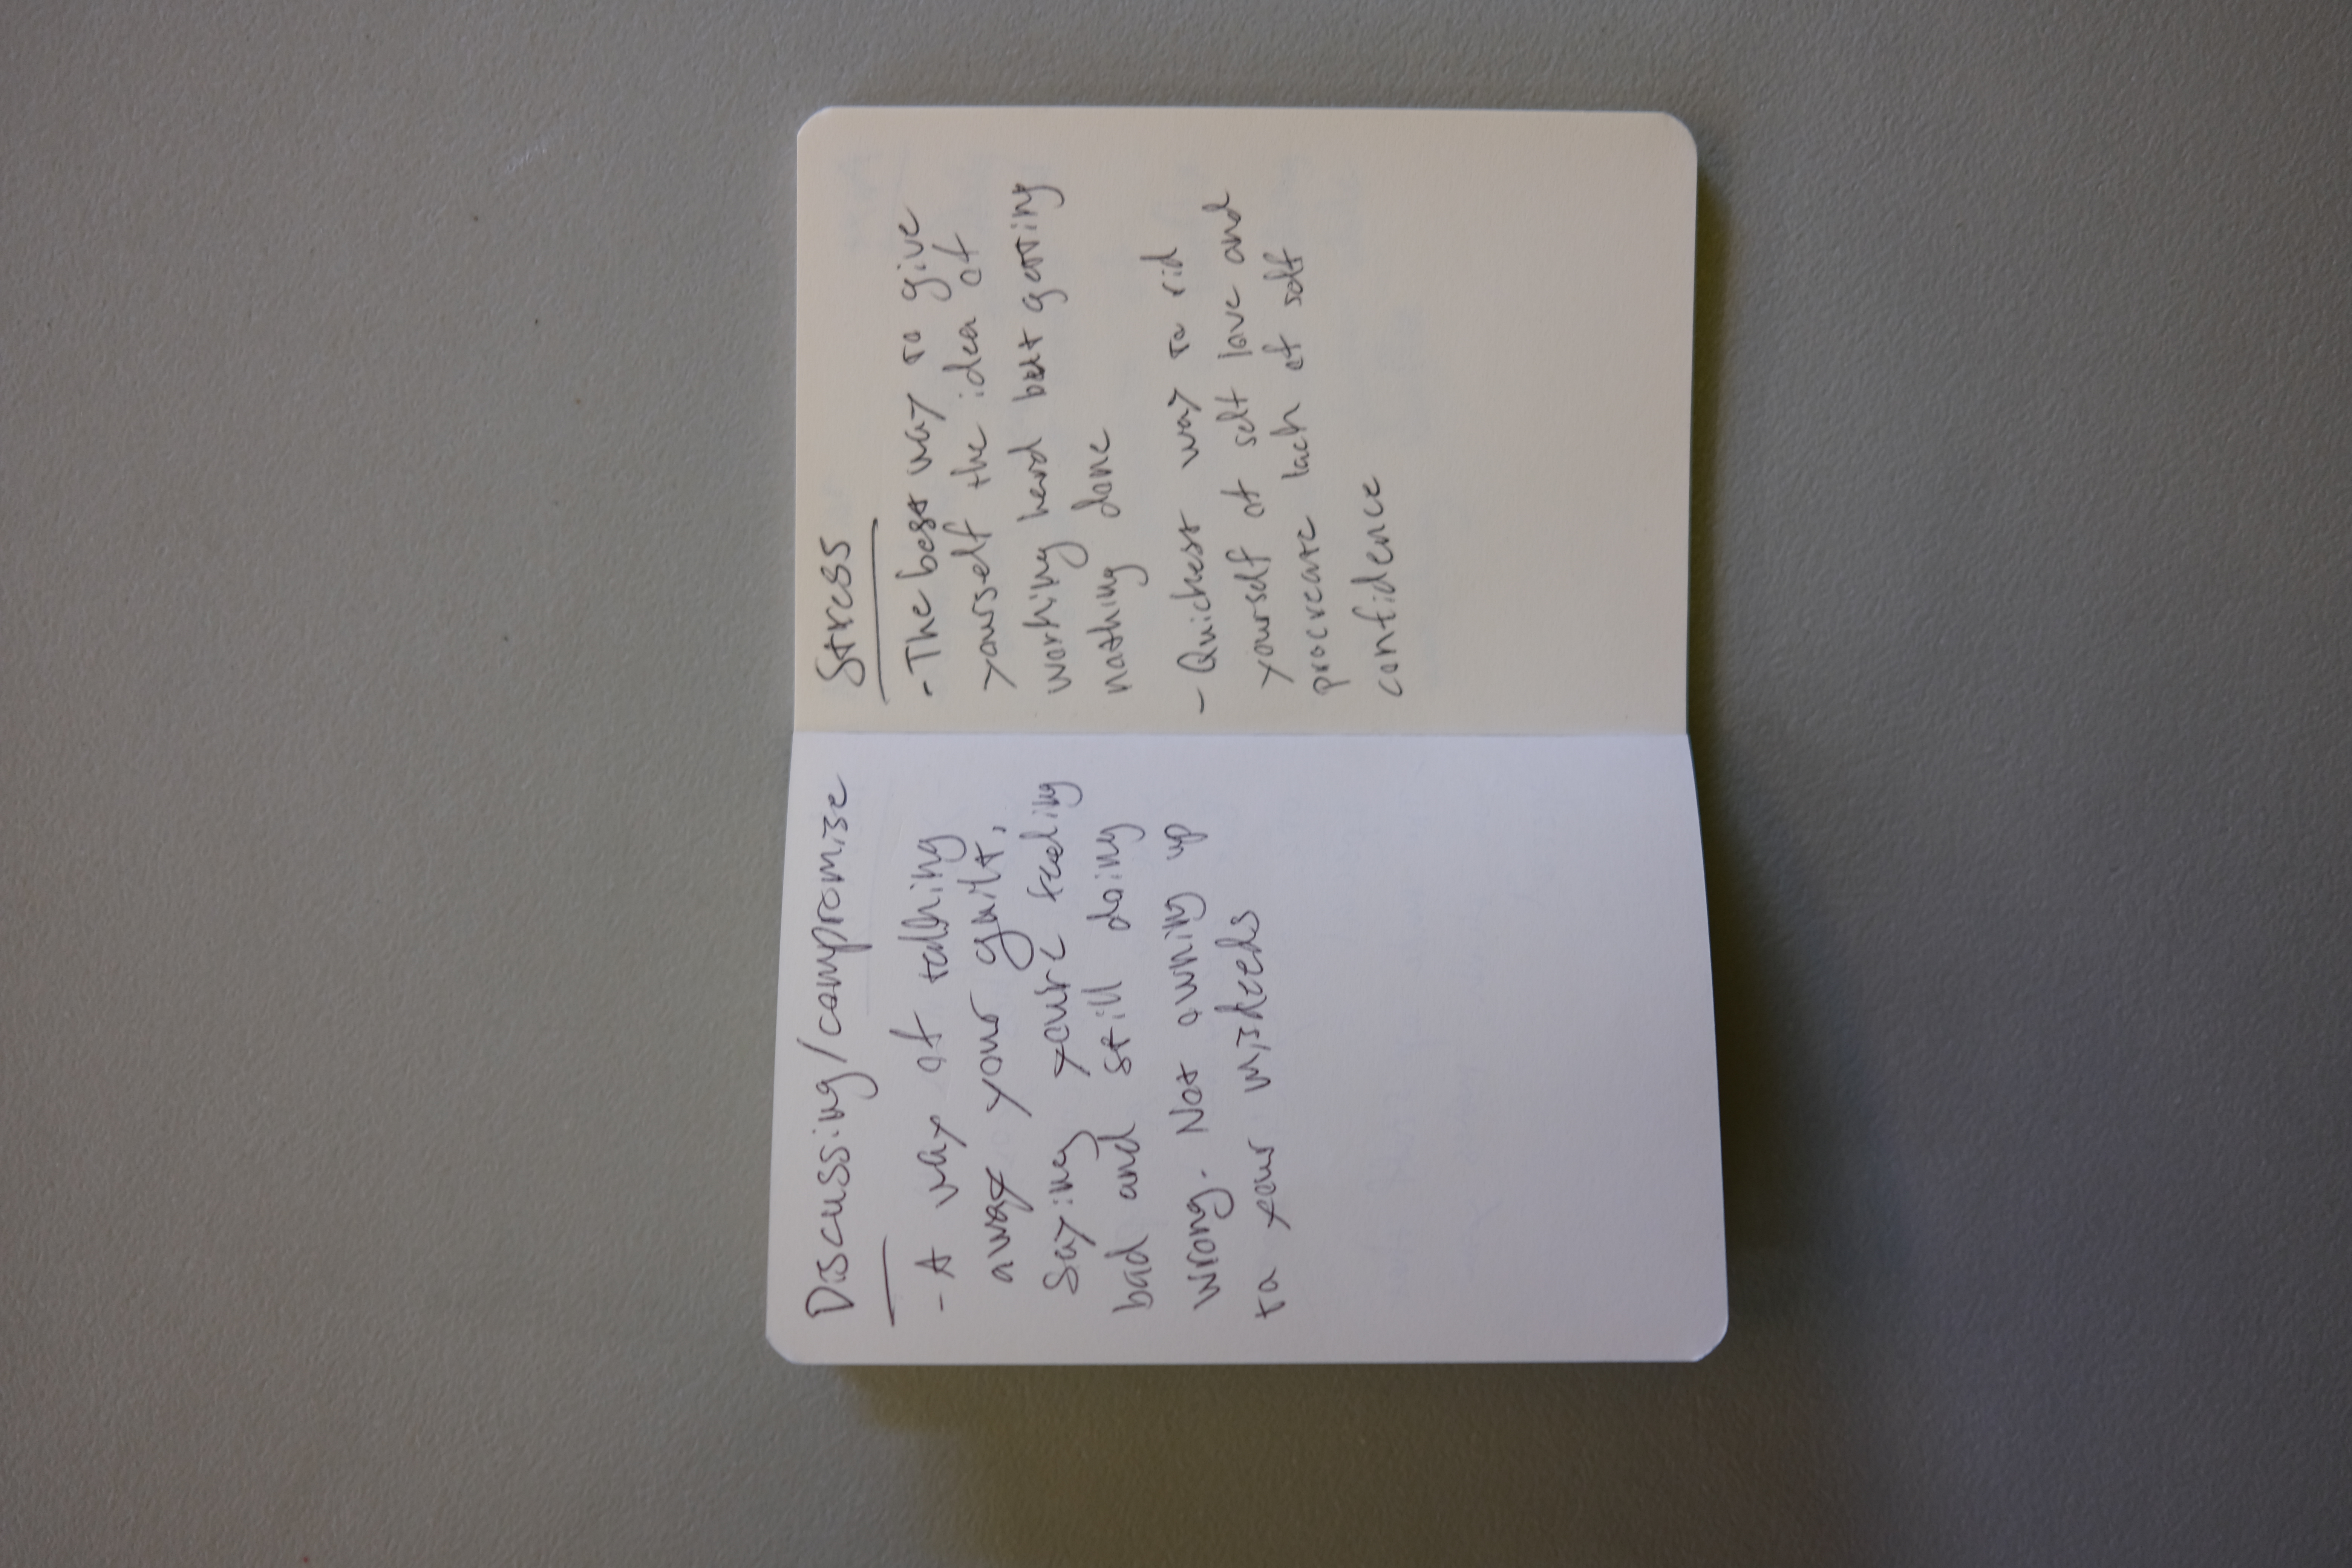 Discussing/compromise
- A way of talking
away your guilt,
Saying youre feeling
bad and still doing
wrong. Not owning up
to your misdeeds
Stress
- The best way to give
yourself the idea of
working hard but getting
nothing done
- Quickest way to rid
yourself of self love and
procreate lack of self
confidence